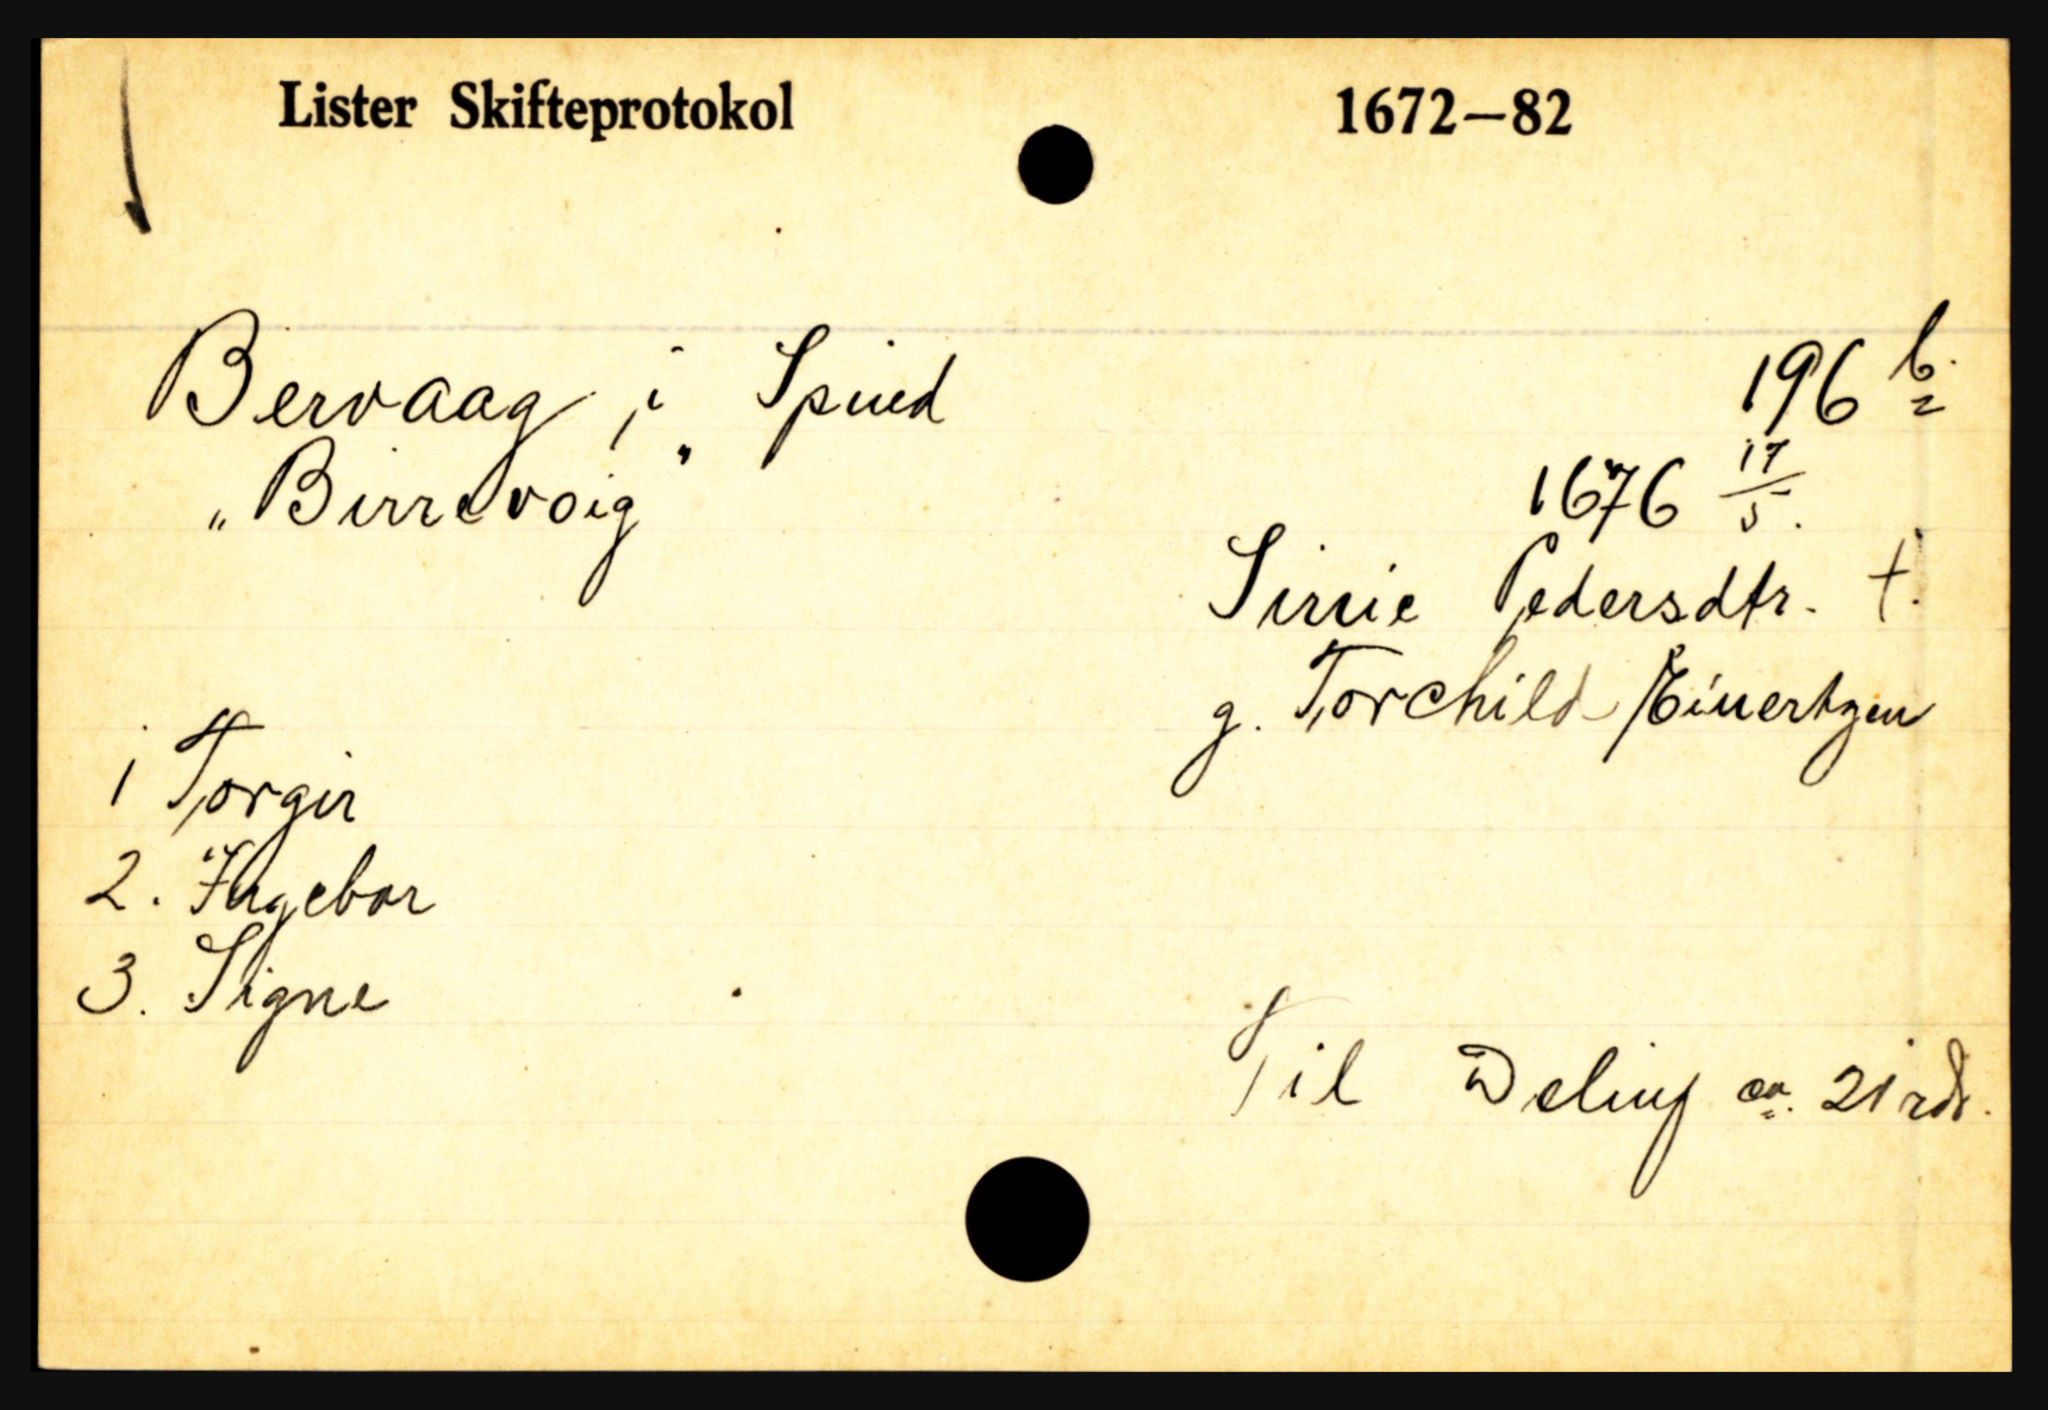 Lister Skifteprotokol 1672–82
Bervaag i Spind 196 b.
"Birrevoig" 1676 17/5.
Sirrie Pedersdtr. †.
g. Torchild Einertzen
1 Torgir
2. Ingebor
3. Signe
Til Deling ca. 21 rdr.